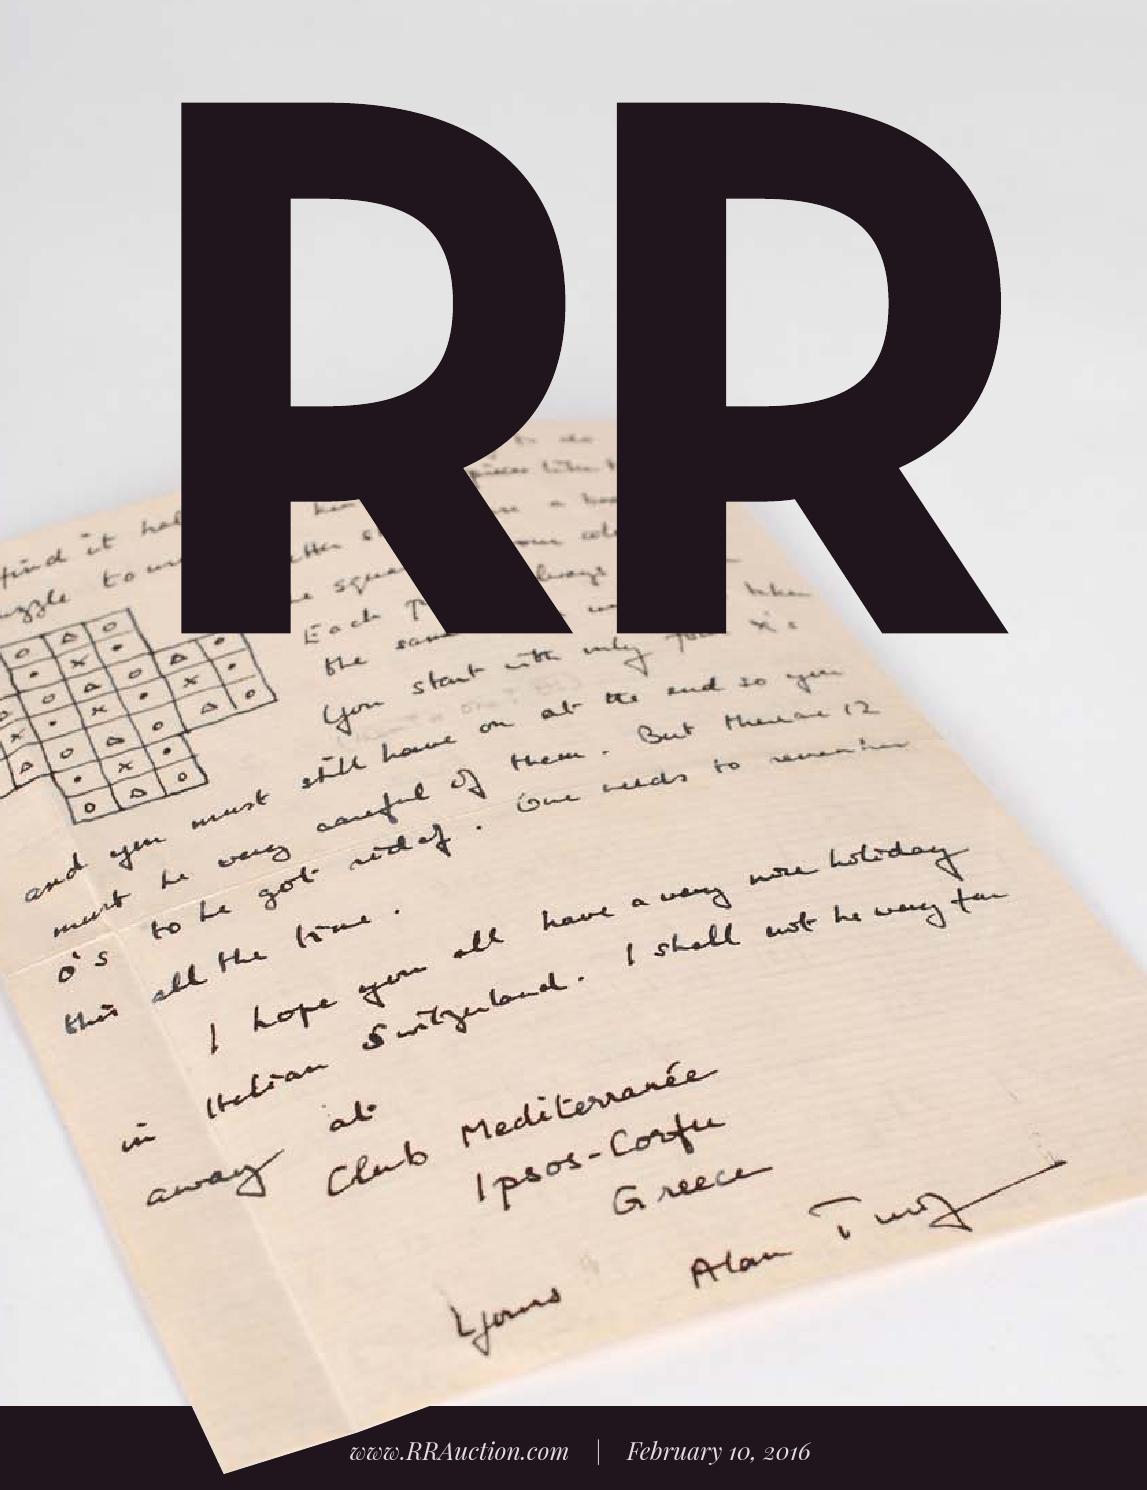 RR
find it hel
uzzle to
the squa
Each
always
the same
when
You start with only four x's
and you must still have on at the end so you
must be very careful of them. But there are 12
o's to be got rid of. One needs to remember
this all the time.
I hope you all have a very nice holiday
in Italian Switzerland. I shall not be very far
away at
Club Mediterranée
Ipsos-Corfu
Greece
Yours Alan Turing
www.RRAuction.com | February 10, 2016